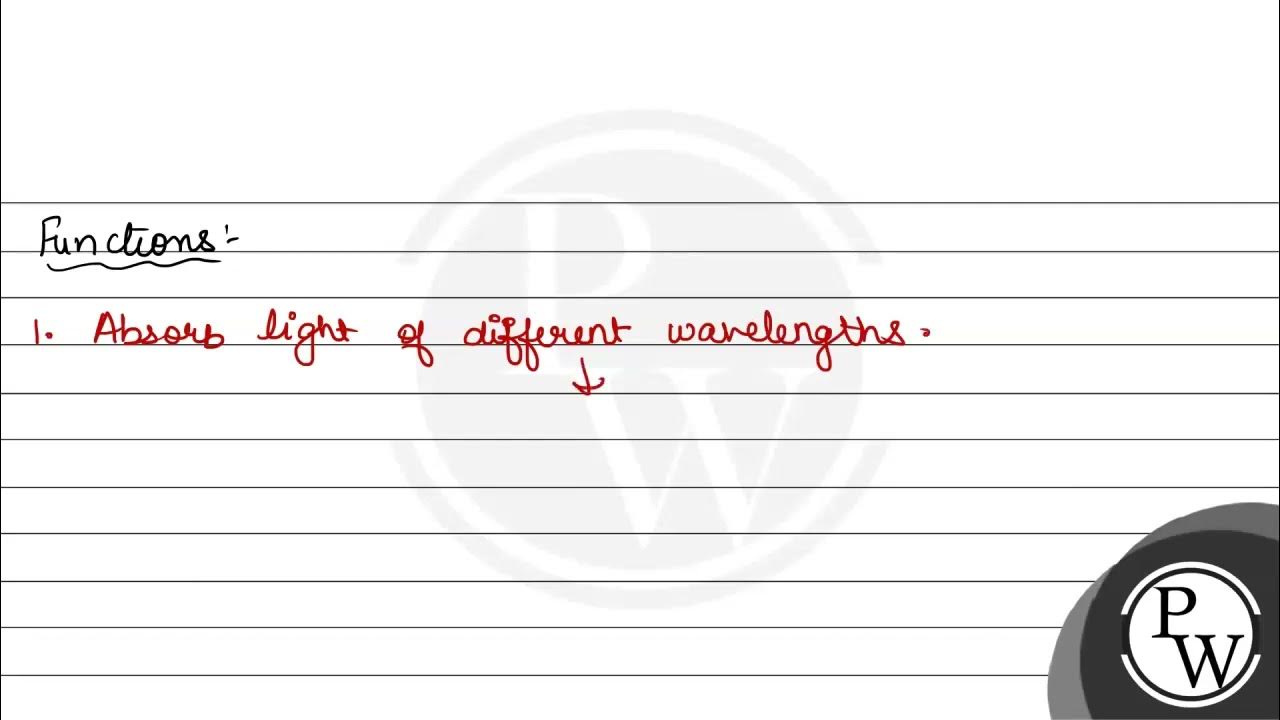 Functions:-
1. Absorb light of different wavelengths.
↓
P
W
P
W